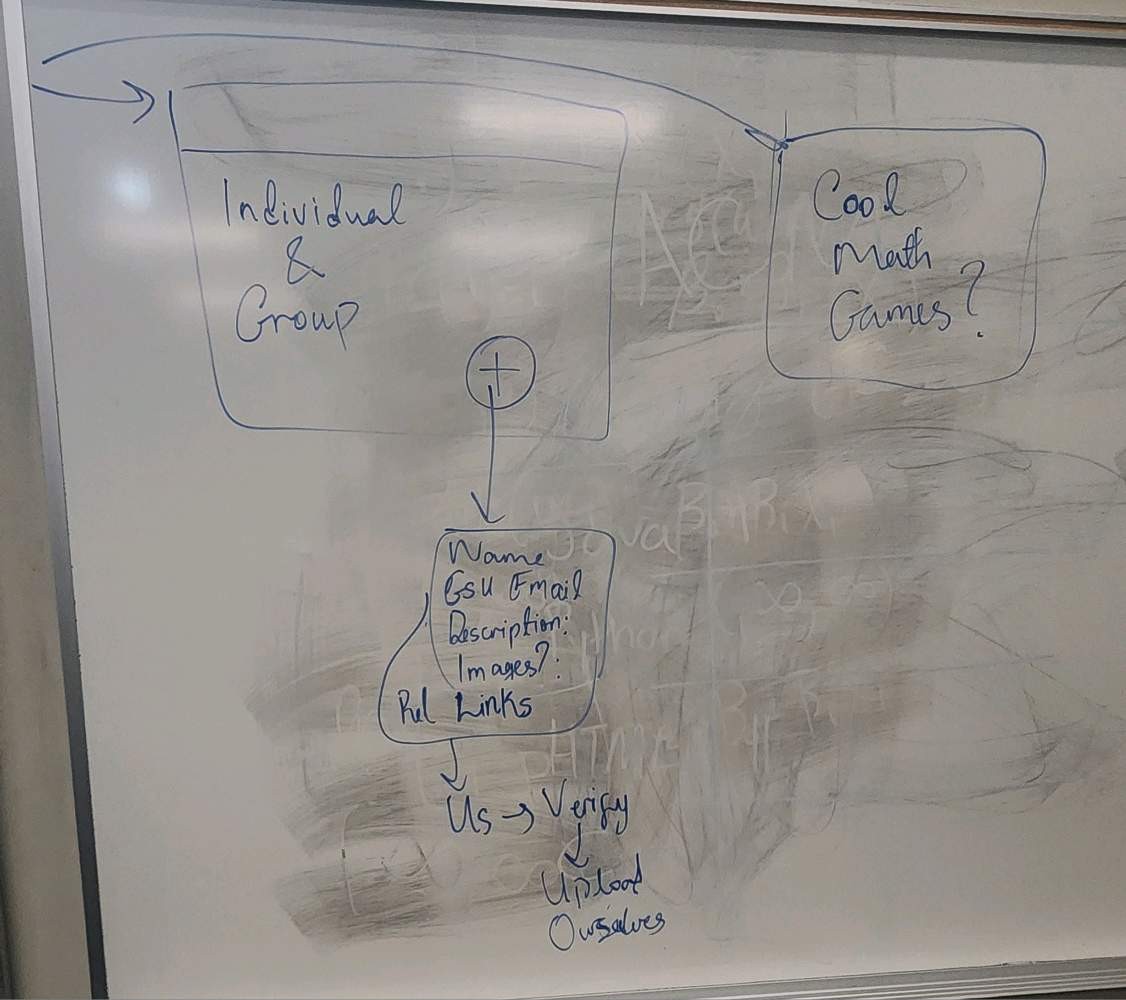 Individual
&
Group
+
Cool
Math
Games?
Name
GSU Email
Description:
Images?:
Rel Links
Us → Verify
Upload
Ourselves
Java
HTML